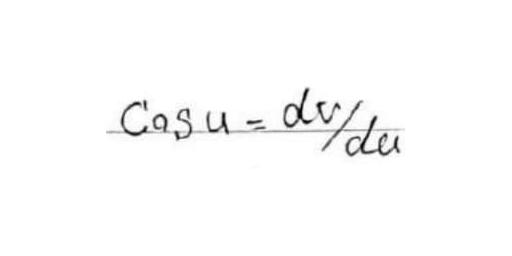 Cos u = dv/du